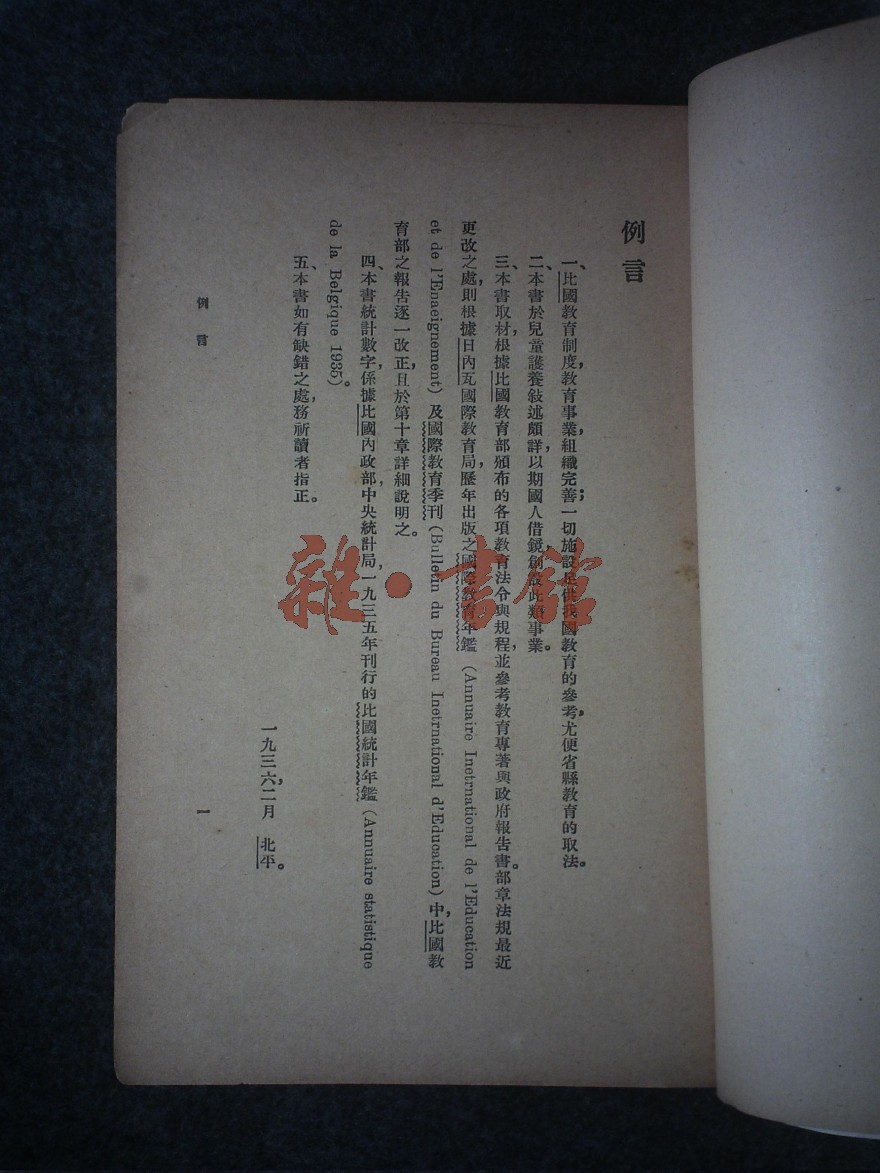 例言
一、比國教育制度，教育事業，組織完善；一切施設足供我國教育的參考，尤便省縣教育的取法。
二、本書於兒童護養敍述頗詳，以期國人借鏡，創設此類事業。
三、本書取材，根據比國教育部頒布的各項教育法令與規程，並參考教育專著與政府報告書。部章法規最近
更改之處，則根據日內瓦國際教育局，歷年出版之國際教育年鑑（Annuaire Inetrnational de l'Education
et de l'Enaeignement）及國際教育季刊（Bulletin du Bureau Inetrnational d'Education）中，比國教
育部之報告逐一改正，且於第十章詳細說明之。
四、本書統計數字，係據比國內政部，中央統計局，一九三五年刊行的比國統計年鑑（Annuaire statistique
de la Belgique 1935）。
五、本書如有缺錯之處，務祈讀者指正。
一九三六，二月　北平。
例言
一
雜·書館